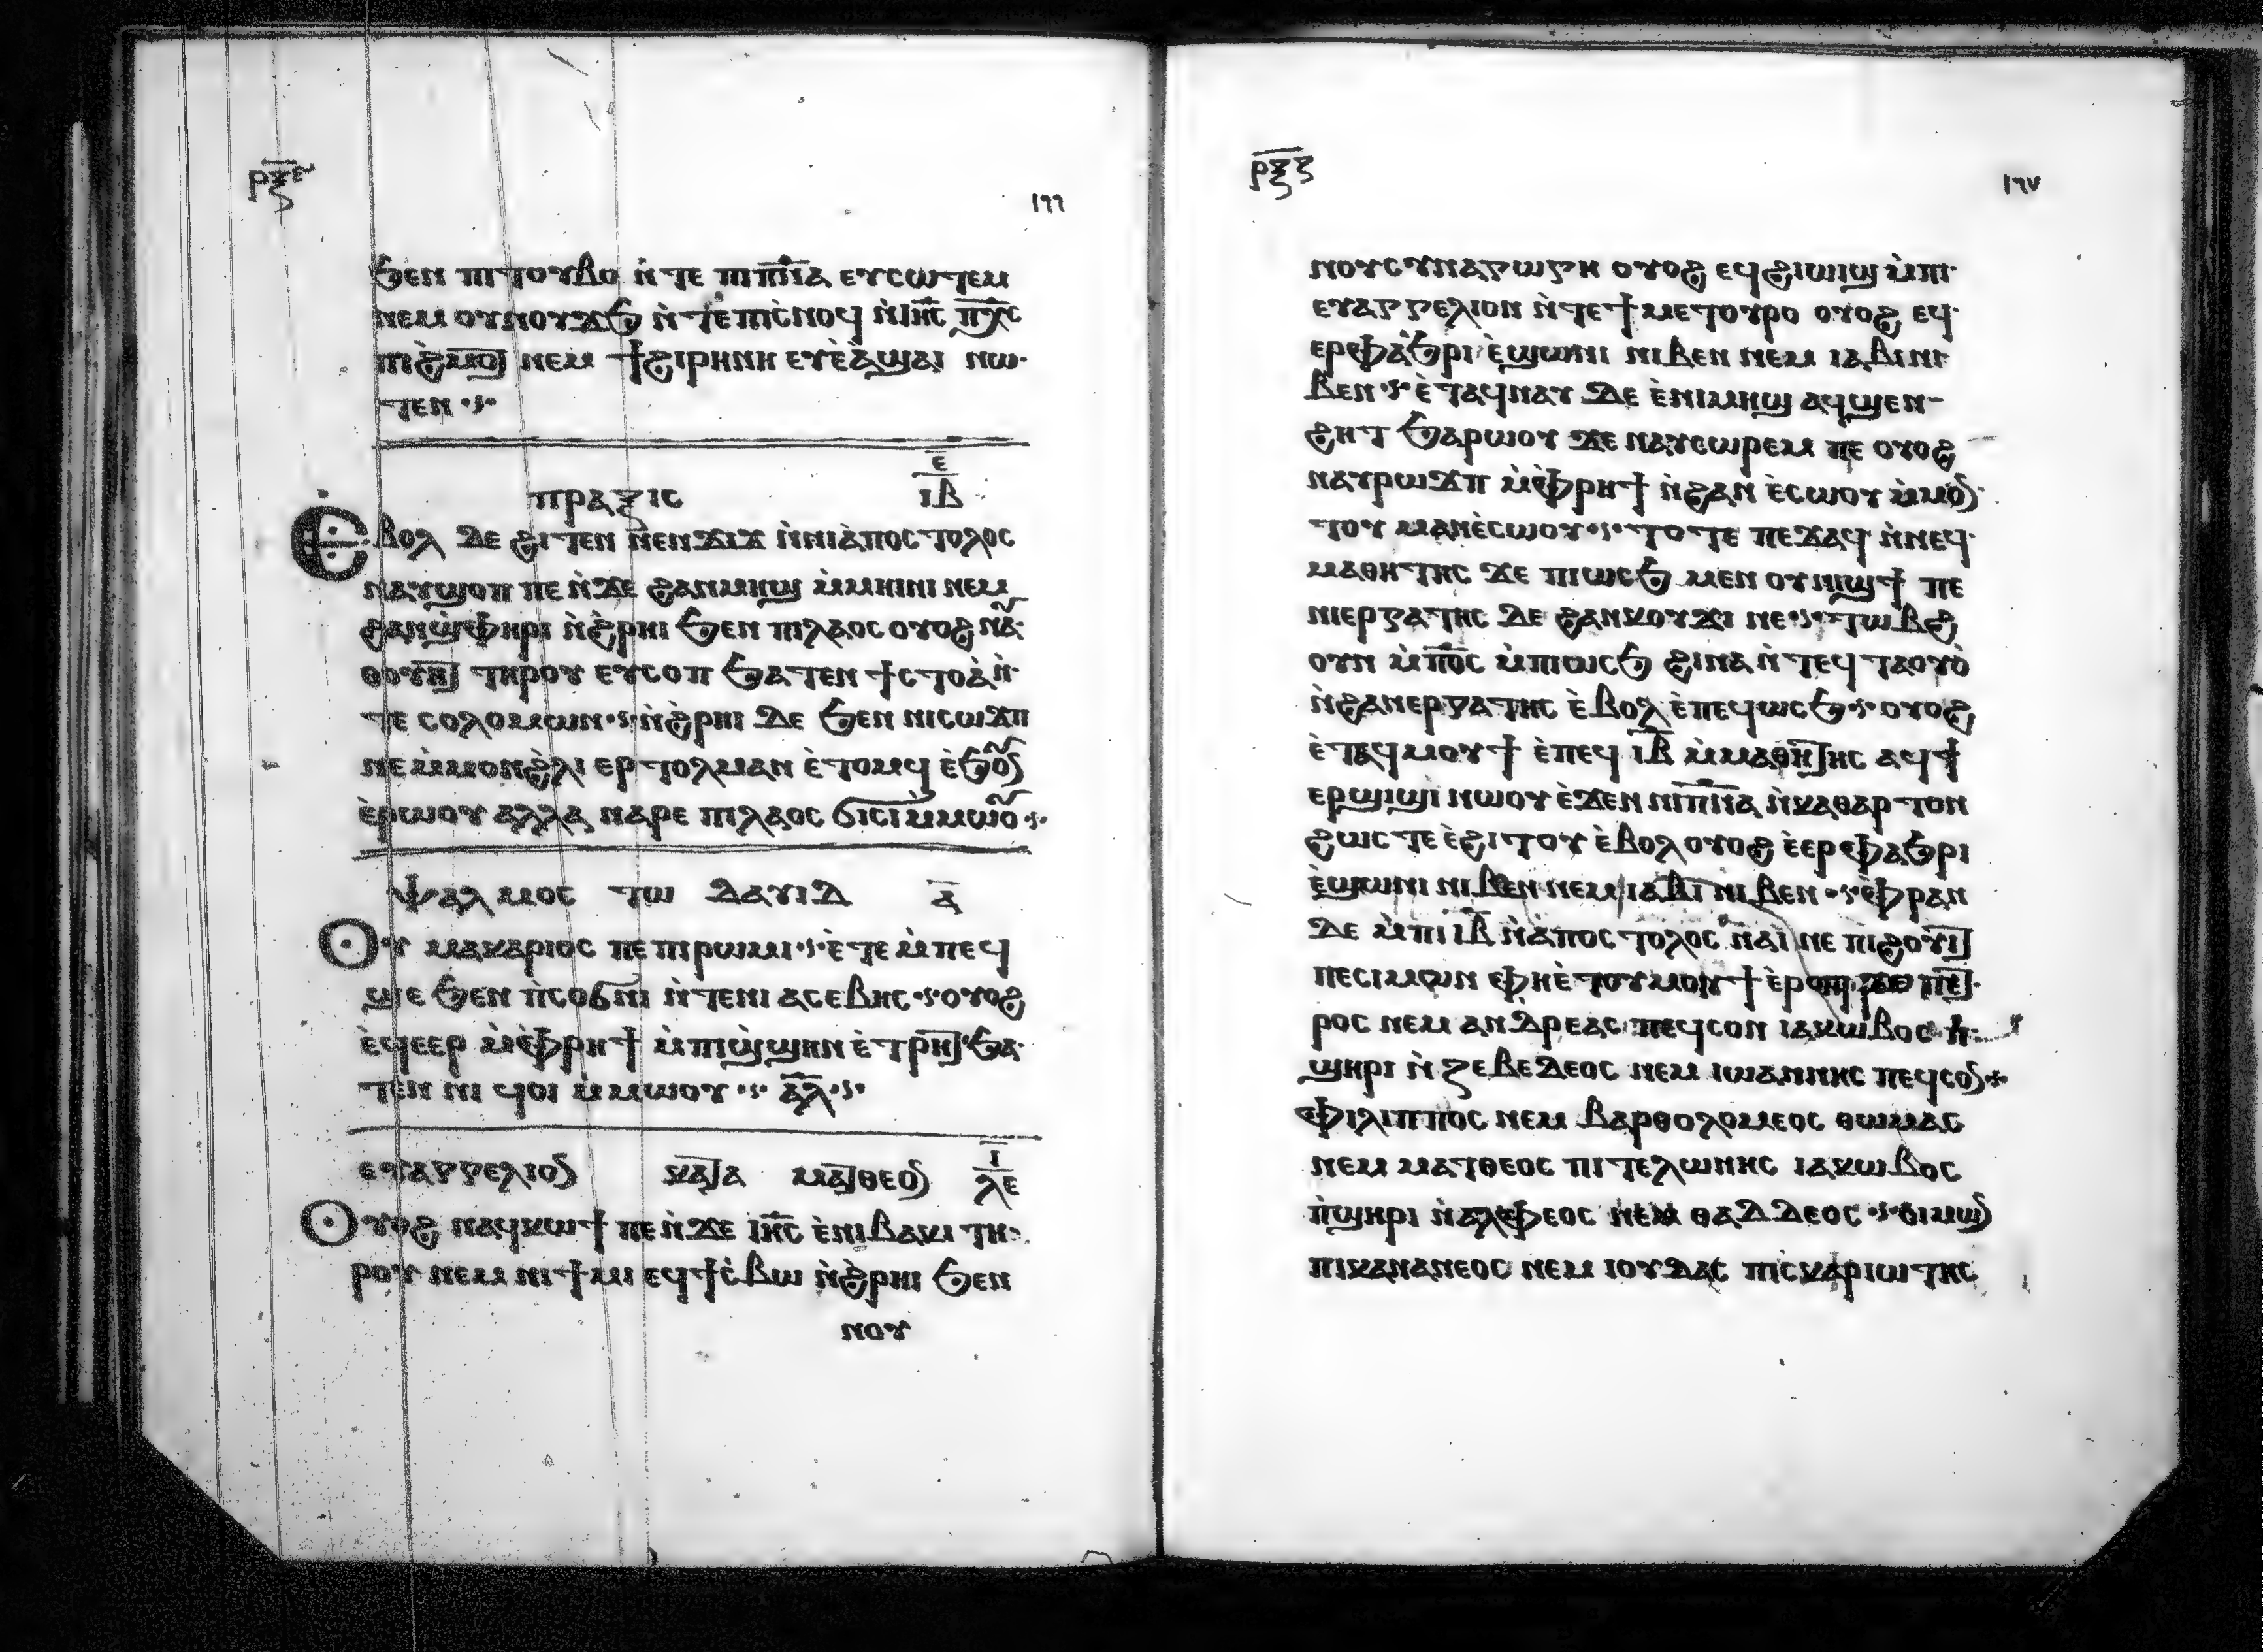 ⲣⲝⲉ
١٦٦
ϧⲉⲛ ⲡⲓⲧⲟⲩⲃⲟ ⲛ̀ⲧⲉ ⲡⲓⲡ̅ⲛ̅ⲁ ⲉⲩⲥⲱⲧⲉⲙ
ⲛⲉⲙ ⲟⲩⲛⲟⲩϫϧ ⲛ̀ⲧⲉ ⲡⲓⲥ̀ⲛⲟϥ ⲛ̀ⲓⲏ̅ⲥ̅ ⲡ̅ⲭ̅ⲥ
ⲡⲓϩ̀ⲙⲟⲧ ⲛⲉⲙ ϯϩⲓⲣⲏⲛⲏ ⲉⲩⲉ̀ⲁ̀ϣⲁⲓ ⲛⲱ
ⲧⲉⲛ
ⲡⲣⲁⲝⲓⲥ ⲉ̅ ⲓ̅ⲃ̅
Ⲉ̀ⲃⲟⲗ ⲇⲉ ϩⲓⲧⲉⲛ ⲛⲉⲛϫⲓϫ ⲛ̀ⲛⲓⲁ̀ⲡⲟⲥⲧⲟⲗⲟⲥ
ⲛⲁⲩϣⲟⲡ ⲡⲉ ⲛ̀ϫⲉ ϩⲁⲛⲙⲏϣ ⲙ̀ⲙⲏⲓⲛⲓ ⲛⲉⲙ
ϩⲁⲛϣ̀ⲫⲏⲣⲓ ⲛ̀ϩ̀ⲣⲏⲓ ϧⲉⲛ ⲡⲓⲗⲁⲟⲥ ⲟⲩⲟϩ ⲛⲁ
ⲑⲟⲩⲏⲧ ⲧⲏⲣⲟⲩ ⲉⲩⲥⲟⲡ ϧⲁⲧⲉⲛ ϯⲥⲧⲟⲁ̀ ⲛ̀
ⲧⲉ ⲥⲟⲗⲟⲙⲱⲛ ⲛ̀ϩ̀ⲣⲏⲓ ⲇⲉ ϧⲉⲛ ⲛⲓⲥⲱϫⲡ
ⲛⲉ ⲙ̀ⲙⲟⲛ ϩ̀ⲗⲓ ⲉⲣⲧⲟⲗⲙⲁⲛ ⲉ̀ⲧⲟⲙϥ ⲉ̀ϧⲟⲩⲛ
ⲉ̀ⲣⲱⲟⲩ ⲁⲗⲗⲁ ⲛⲁⲣⲉ ⲡⲓⲗⲁⲟⲥ ϭⲓⲥⲓ ⲙ̀ⲙⲱⲟⲩ
ⲯⲁⲗⲙⲟⲥ ⲧⲱ ⲇⲁⲩⲓⲇ ⲁ̅
Ⲟⲩ ⲙⲁⲕⲁⲣⲓⲟⲥ ⲡⲉ ⲡⲓⲣⲱⲙⲓ ⲉ̀ⲧⲉ ⲙ̀ⲡⲉϥ
ϣⲉ ϧⲉⲛ ⲡ̀ⲥⲟϭⲛⲓ ⲛ̀ⲧⲉⲛⲓ ⲁⲥⲉⲃⲏⲥ ⲟⲩⲟϩ
ⲉ̀ϥⲉⲉⲣ ⲙ̀ⲫ̀ⲣⲏϯ ⲙ̀ⲡⲓϣ̀ϣⲏⲛ ⲉⲧⲣⲏⲧ ϧⲁ
ⲧⲉⲛ ⲛⲓ ϥⲟⲓ ⲙ̀ⲙⲱⲟⲩ ⲁ̅ⲗ̅
ⲉⲩⲁⲅⲅⲉⲗⲓⲟⲛ ⲕⲁⲧⲁ ⲙⲁⲧⲑⲉⲟⲛ ⲓ̅ ⲗⲉ
Ⲟⲩⲟϩ ⲛⲁϥⲕⲱϯ ⲡⲉ ⲛ̀ϫⲉ ⲓⲏ̅ⲥ̅ ⲉ̀ⲛⲓⲃⲁⲕⲓ ⲧⲏ
ⲣⲟⲩ ⲛⲉⲙ ⲛⲓϯⲙⲓ ⲉϥϯⲥ̀ⲃⲱ ⲛ̀ϩ̀ⲣⲏⲓ ϧⲉⲛ
ⲛⲟⲩ
ⲣⲝⲋ
١٦٧
ⲛⲟⲩⲥⲩⲛⲁⲅⲱⲅⲏ ⲟⲩⲟϩ ⲉϥϩⲓⲱⲓϣ ⲙ̀ⲡⲓ
ⲉⲩⲁⲅⲅⲉⲗⲓⲟⲛ ⲛ̀ⲧⲉ ϯⲙⲉⲧⲟⲩⲣⲟ ⲟⲩⲟϩ ⲉϥ
ⲉⲣⲫⲁϧⲣⲓ ⲉ̀ϣⲱⲛⲓ ⲛⲓⲃⲉⲛ ⲛⲉⲙ ⲓⲁⲃⲓ ⲛⲓ
ⲃⲉⲛ ⲉ̀ⲧⲁϥⲛⲁⲩ ⲇⲉ ⲉ̀ⲛⲓⲙⲏϣ ⲁϥϣⲉⲛ
ϩⲏⲧ ϧⲁⲣⲱⲟⲩ ϫⲉ ⲛⲁⲩⲥⲱⲣⲉⲙ ⲡⲉ ⲟⲩⲟϩ
ⲛⲁⲩⲣⲱϫⲡ ⲙ̀ⲫ̀ⲣⲏϯ ⲛ̀ϩⲁⲛ ⲉ̀ⲥⲱⲟⲩ ⲙ̀ⲙⲟⲛ
ⲧⲟⲩ ⲙⲁⲛⲉ̀ⲥⲱⲟⲩ ⲧⲟⲧⲉ ⲡⲉϫⲁϥ ⲛ̀ⲛⲉϥ
ⲙⲁⲑⲏⲧⲏⲥ ϫⲉ ⲡⲓⲱⲥϧ ⲙⲉⲛ ⲟⲩⲛⲓϣϯ ⲡⲉ
ⲛⲓⲉⲣⲅⲁⲧⲏⲥ ⲇⲉ ϩⲁⲛⲕⲟⲩϫⲓ ⲛⲉ ⲧⲱⲃϩ
ⲟⲩⲛ ⲙ̀ⲡ̅ⲟ̅ⲥ ⲙ̀ⲡⲓⲱⲥϧ ϩⲓⲛⲁ ⲛ̀ⲧⲉϥⲧⲁⲟⲩⲟ̀
ⲛ̀ϩⲁⲛⲉⲣⲅⲁⲧⲏⲥ ⲉ̀ⲃⲟⲗ ⲉ̀ⲡⲉϥⲱⲥϧ ⲟⲩⲟϩ
ⲉ̀ⲧⲁϥⲙⲟⲩϯ ⲉ̀ⲡⲉϥ ⲓ̅ⲃ̅ ⲙ̀ⲙⲁⲑⲏⲧⲏⲥ ⲁϥϯ
ⲉⲣϣⲓϣⲓ ⲛⲱⲟⲩ ⲉ̀ϫⲉⲛ ⲛⲓⲡ̅ⲛ̅ⲁ ⲛ̀ⲕⲁⲑⲁⲣⲧⲟⲛ
ϩⲱⲥⲧⲉ ⲉ̀ϩⲓⲧⲟⲩ ⲉ̀ⲃⲟⲗ ⲟⲩⲟϩ ⲉ̀ⲉⲣⲫⲁϧⲣⲓ
ⲉ̀ϣⲱⲛⲓ ⲛⲓⲃⲉⲛ ⲛⲉⲙ ⲓⲁⲃⲓ ⲛⲓⲃⲉⲛ ⲫ̀ⲣⲁⲛ
ⲇⲉ ⲙ̀ⲡⲓ ⲓ̅ⲃ̅ ⲛ̀ⲁ̀ⲡⲟⲥⲧⲟⲗⲟⲥ ⲛⲁⲓ ⲛⲉ ⲡⲓϩⲟⲩⲓⲧ
ⲡⲉ ⲥⲓⲙⲱⲛ ⲫⲏⲉ̀ⲧⲟⲩⲙⲟⲩϯ ⲉ̀ⲣⲟϥ ϫⲉ ⲡⲉⲧ
ⲣⲟⲥ ⲛⲉⲙ ⲁⲛⲇⲣⲉⲁⲥ ⲡⲉϥⲥⲟⲛ ⲓⲁⲕⲱⲃⲟⲥ
ϣⲏⲣⲓ ⲛ̀ⲍⲉⲃⲉⲇⲉⲟⲥ ⲛⲉⲙ ⲓⲱⲁⲛⲛⲏⲥ ⲡⲉϥⲥⲟⲛ
ⲫⲓⲗⲓⲡⲡⲟⲥ ⲛⲉⲙ ⲃⲁⲣⲑⲟⲗⲟⲙⲉⲟⲥ ⲑⲱⲙⲁⲥ
ⲛⲉⲙ ⲙⲁⲧⲑⲉⲟⲥ ⲡⲓⲧⲉⲗⲱⲛⲏⲥ ⲓⲁⲕⲱⲃⲟⲥ
ⲡ̀ϣⲏⲣⲓ ⲛ̀ⲁⲗⲫⲉⲟⲥ ⲛⲉⲙ ⲑⲁⲇⲇⲉⲟⲥ ⲥⲓⲙⲱⲛ
ⲡⲓⲕⲁⲛⲁⲛⲉⲟⲥ ⲛⲉⲙ ⲓⲟⲩⲇⲁⲥ ⲡⲓⲥⲕⲁⲣⲓⲱⲧⲏⲥ